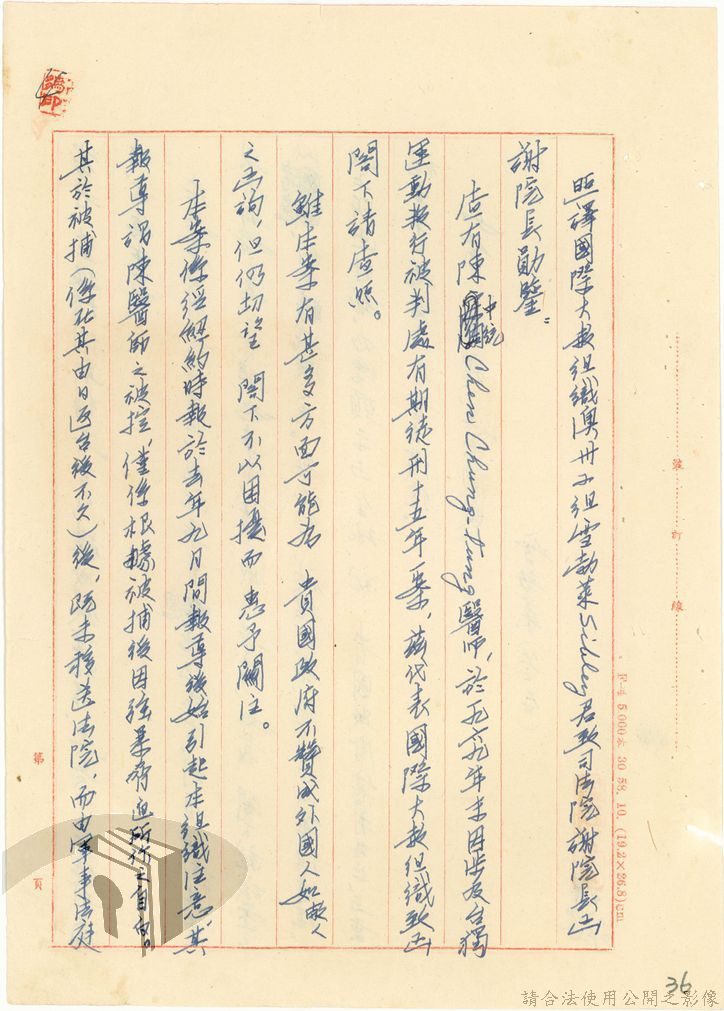 照譯國際大赦組織澳州子組雪勃萊Sibley君致司法院謝院長函
謝院長勛鑒：
查有陳中統Chen Chung-tung醫師，於一九六九年末因涉及台獨
運動叛行被判處有期徒刑十五年一案，茲代表國際大赦組織致函
閣下請查照。
雖本案有甚多方面可能為 貴國政府不贊成外國人如敝人
之函詢，但仍切望 閣下不以困擾而 惠予關注。
本案係經紐約時報於去年九月間報導後始引起本組織注意，其
報導謂陳醫師之被控，僅係根據被捕後因強暴脅迫所作之自白。
其於被捕（係在其由日返台後不久）後，既未移送法院，而由軍事法庭
裝 訂 線
F—4 5,000本 30 58. 10. (19.2×26.8)cm
第 頁
36
請合法使用公開之影像